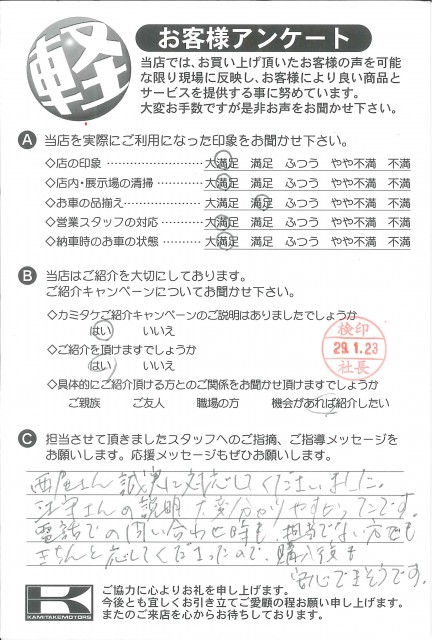 軽
お客様アンケート
当店では、お買い上げ頂いたお客様の声を可能
な限り現場に反映し、お客様により良い商品と
サービスを提供する事に努めています。
大変お手数ですが是非お声をお聞かせ下さい。
A 当店を実際にご利用になった印象をお聞かせ下さい。
◇店の印象 ………………………… 大満足 満足 ふつう やや不満 不満
◇店内・展示場の清掃 …………… 大満足 満足 ふつう やや不満 不満
◇お車の品揃え…………………… 大満足 満足 ふつう やや不満 不満
◇営業スタッフの対応 …………… 大満足 満足 ふつう やや不満 不満
◇納車時のお車の状態 …………… 大満足 満足 ふつう やや不満 不満
B 当店はご紹介を大切にしております。
ご紹介キャンペーンについてお聞かせ下さい。
◇カミタケご紹介キャンペーンのご説明はありましたでしょうか
はい いいえ
◇ご紹介を頂けますでしょうか
はい いいえ
検印
29.1.23
社長
◇具体的にご紹介頂ける方とのご関係をお聞かせ頂けますでしょうか
ご親族 ご友人 職場の方 機会があれば紹介したい
C 担当させて頂きましたスタッフへのご指摘、ご指導メッセージを
お願いします。応援メッセージもぜひお願いします。
西尾さん誠実に対応してくださいました。
さんの説明大変分かりやすかったです。
電話での問い合わせ時も、担当でない方でも
きちんと応してくださったので、購入後も
安心できそうです。
K
KAMITAKE MOTORS
ご協力に心よりお礼を申し上げます。
今後とも宜しくお引き立てご愛顧の程お願い申し上げます。
またのご来店を心からお待ちしております。